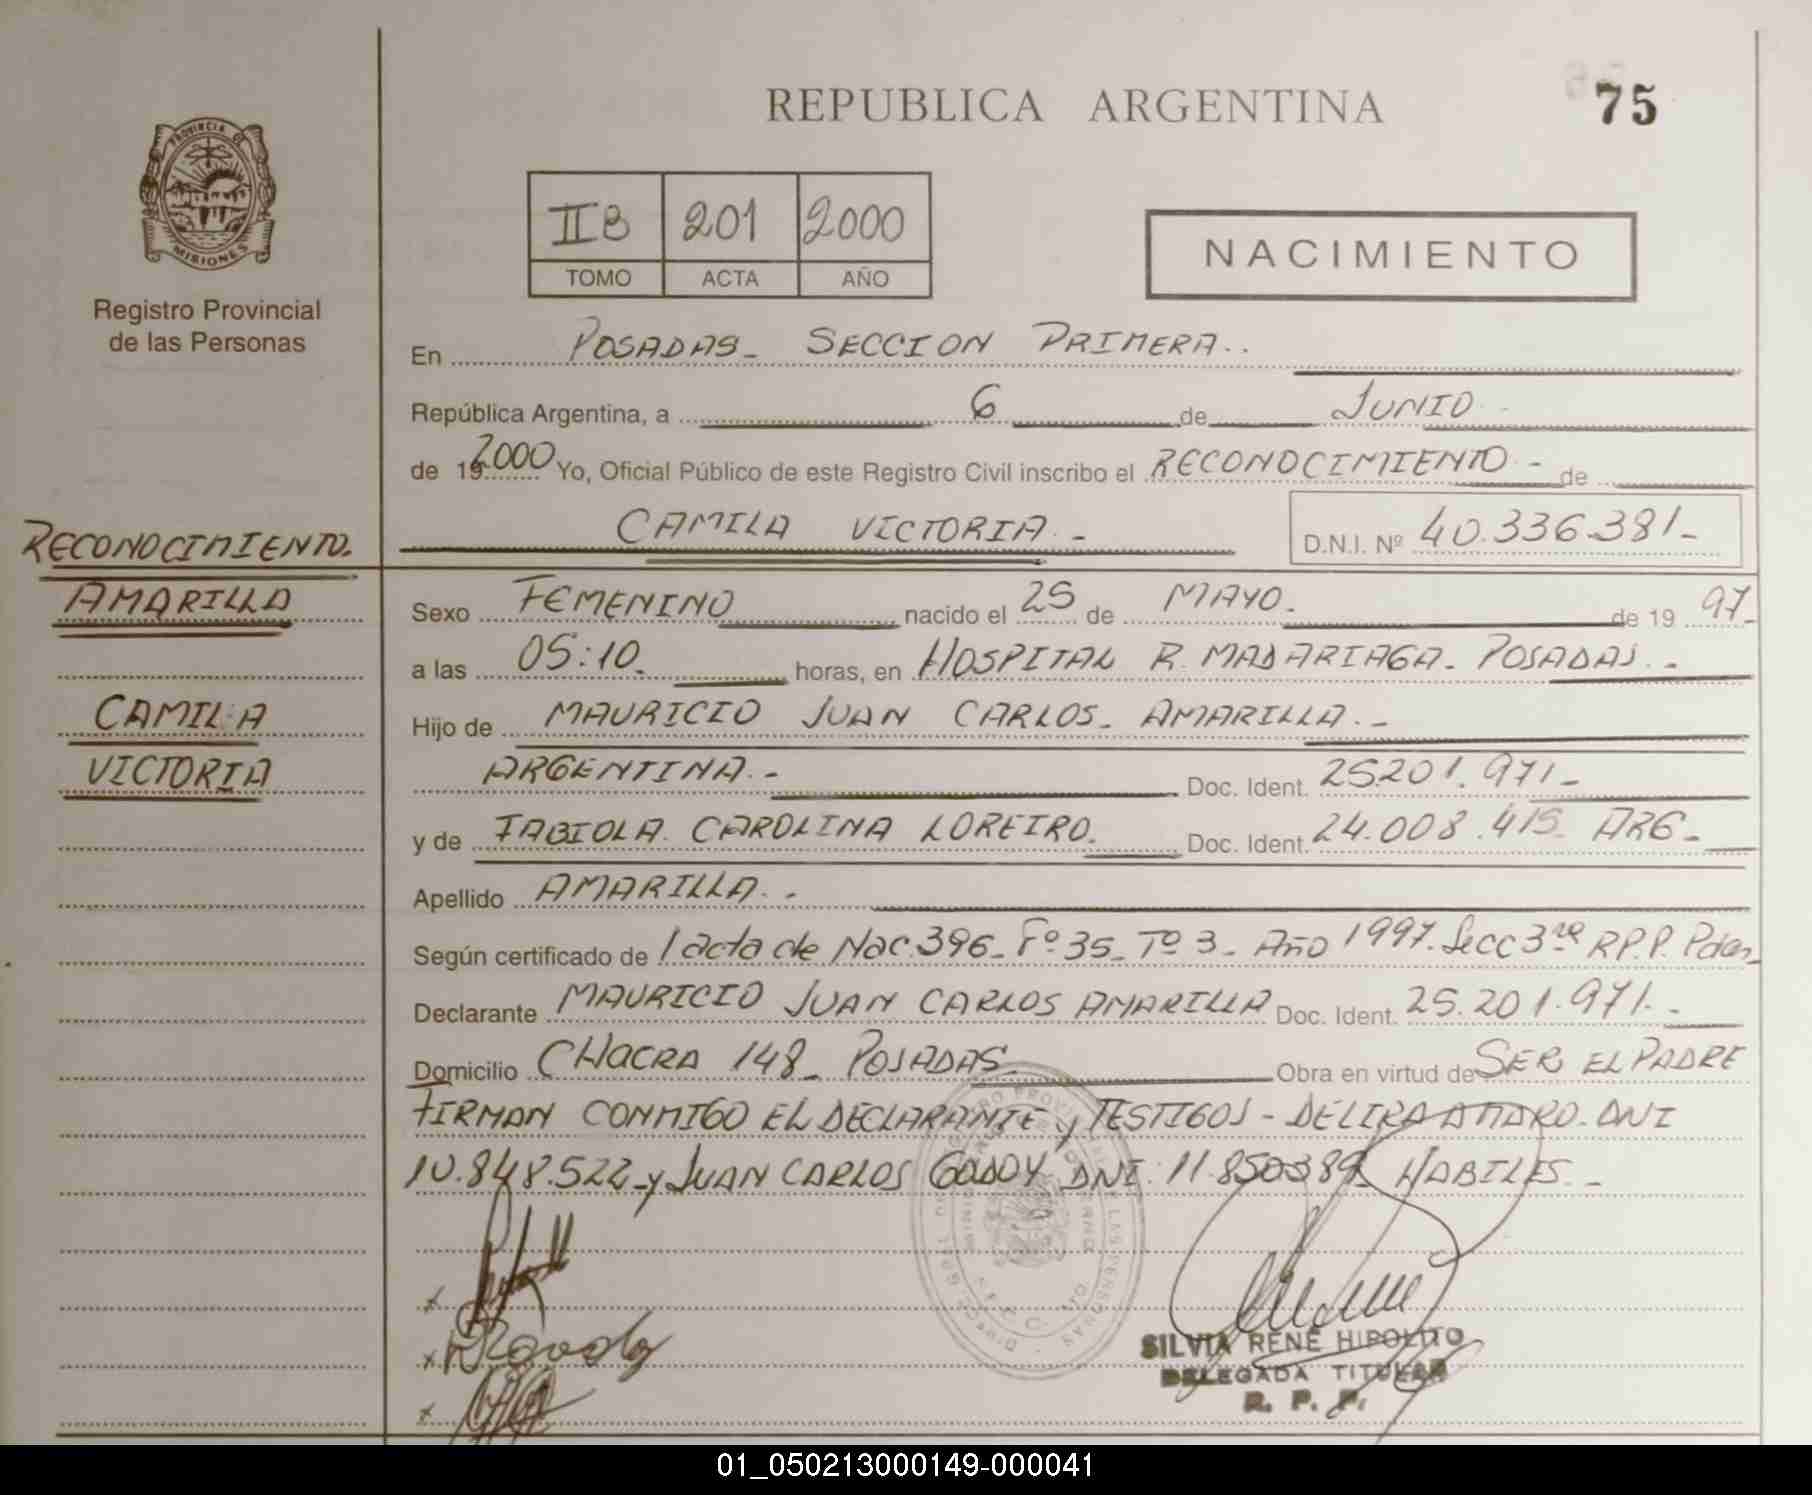 REPUBLICA ARGENTINA
75
PROVINCIA DE
MISIONES
Registro Provincial
de las Personas
II B 201 2000
TOMO ACTA AÑO
NACIMIENTO
En POSADAS_ SECCION PRIMERA..
República Argentina, a 6 de JUNIO
de 19 2000 Yo, Oficial Público de este Registro Civil inscribo el RECONOCIMIENTO - de
CAMILA VICTORIA. -
D.N.I. Nº 40.336.381-
RECONOCIMIENTO.
AMARILLA
CAMILA
VICTORIA
Sexo FEMENINO nacido el 25 de MAYO. de 19 97-
a las 05:10. horas, en HOSPITAL R. MADARIAGA. POSADAS. -
Hijo de MAURICIO JUAN CARLOS. AMARILLA. -
ARGENTINA. - Doc. Ident. 25.201.971-
y de FABIOLA CAROLINA LOREIRO. Doc. Ident. 24.008.415- ARG-
Apellido AMARILLA. -
Según certificado de 1 acta de Nac. 396- Fº 35- Tº 3- Año 1997. Secc 3ra R.P.P. Pdas_
Declarante MAURICIO JUAN CARLOS AMARILLA Doc. Ident. 25.201.971. -
Domicilio CHACRA 148_ POSADAS Obra en virtud de SER EL PADRE
FIRMAN CONMIGO EL DECLARANTE y TESTIGOS - DELIRA AMARO. DNI
10.848.522_ y JUAN CARLOS GODOY DNI: 11.850.389_ HABILES. -
SILVIA RENÉ HIPOLITO
DELEGADA TITULAR
R. P. P.
01_050213000149-000041